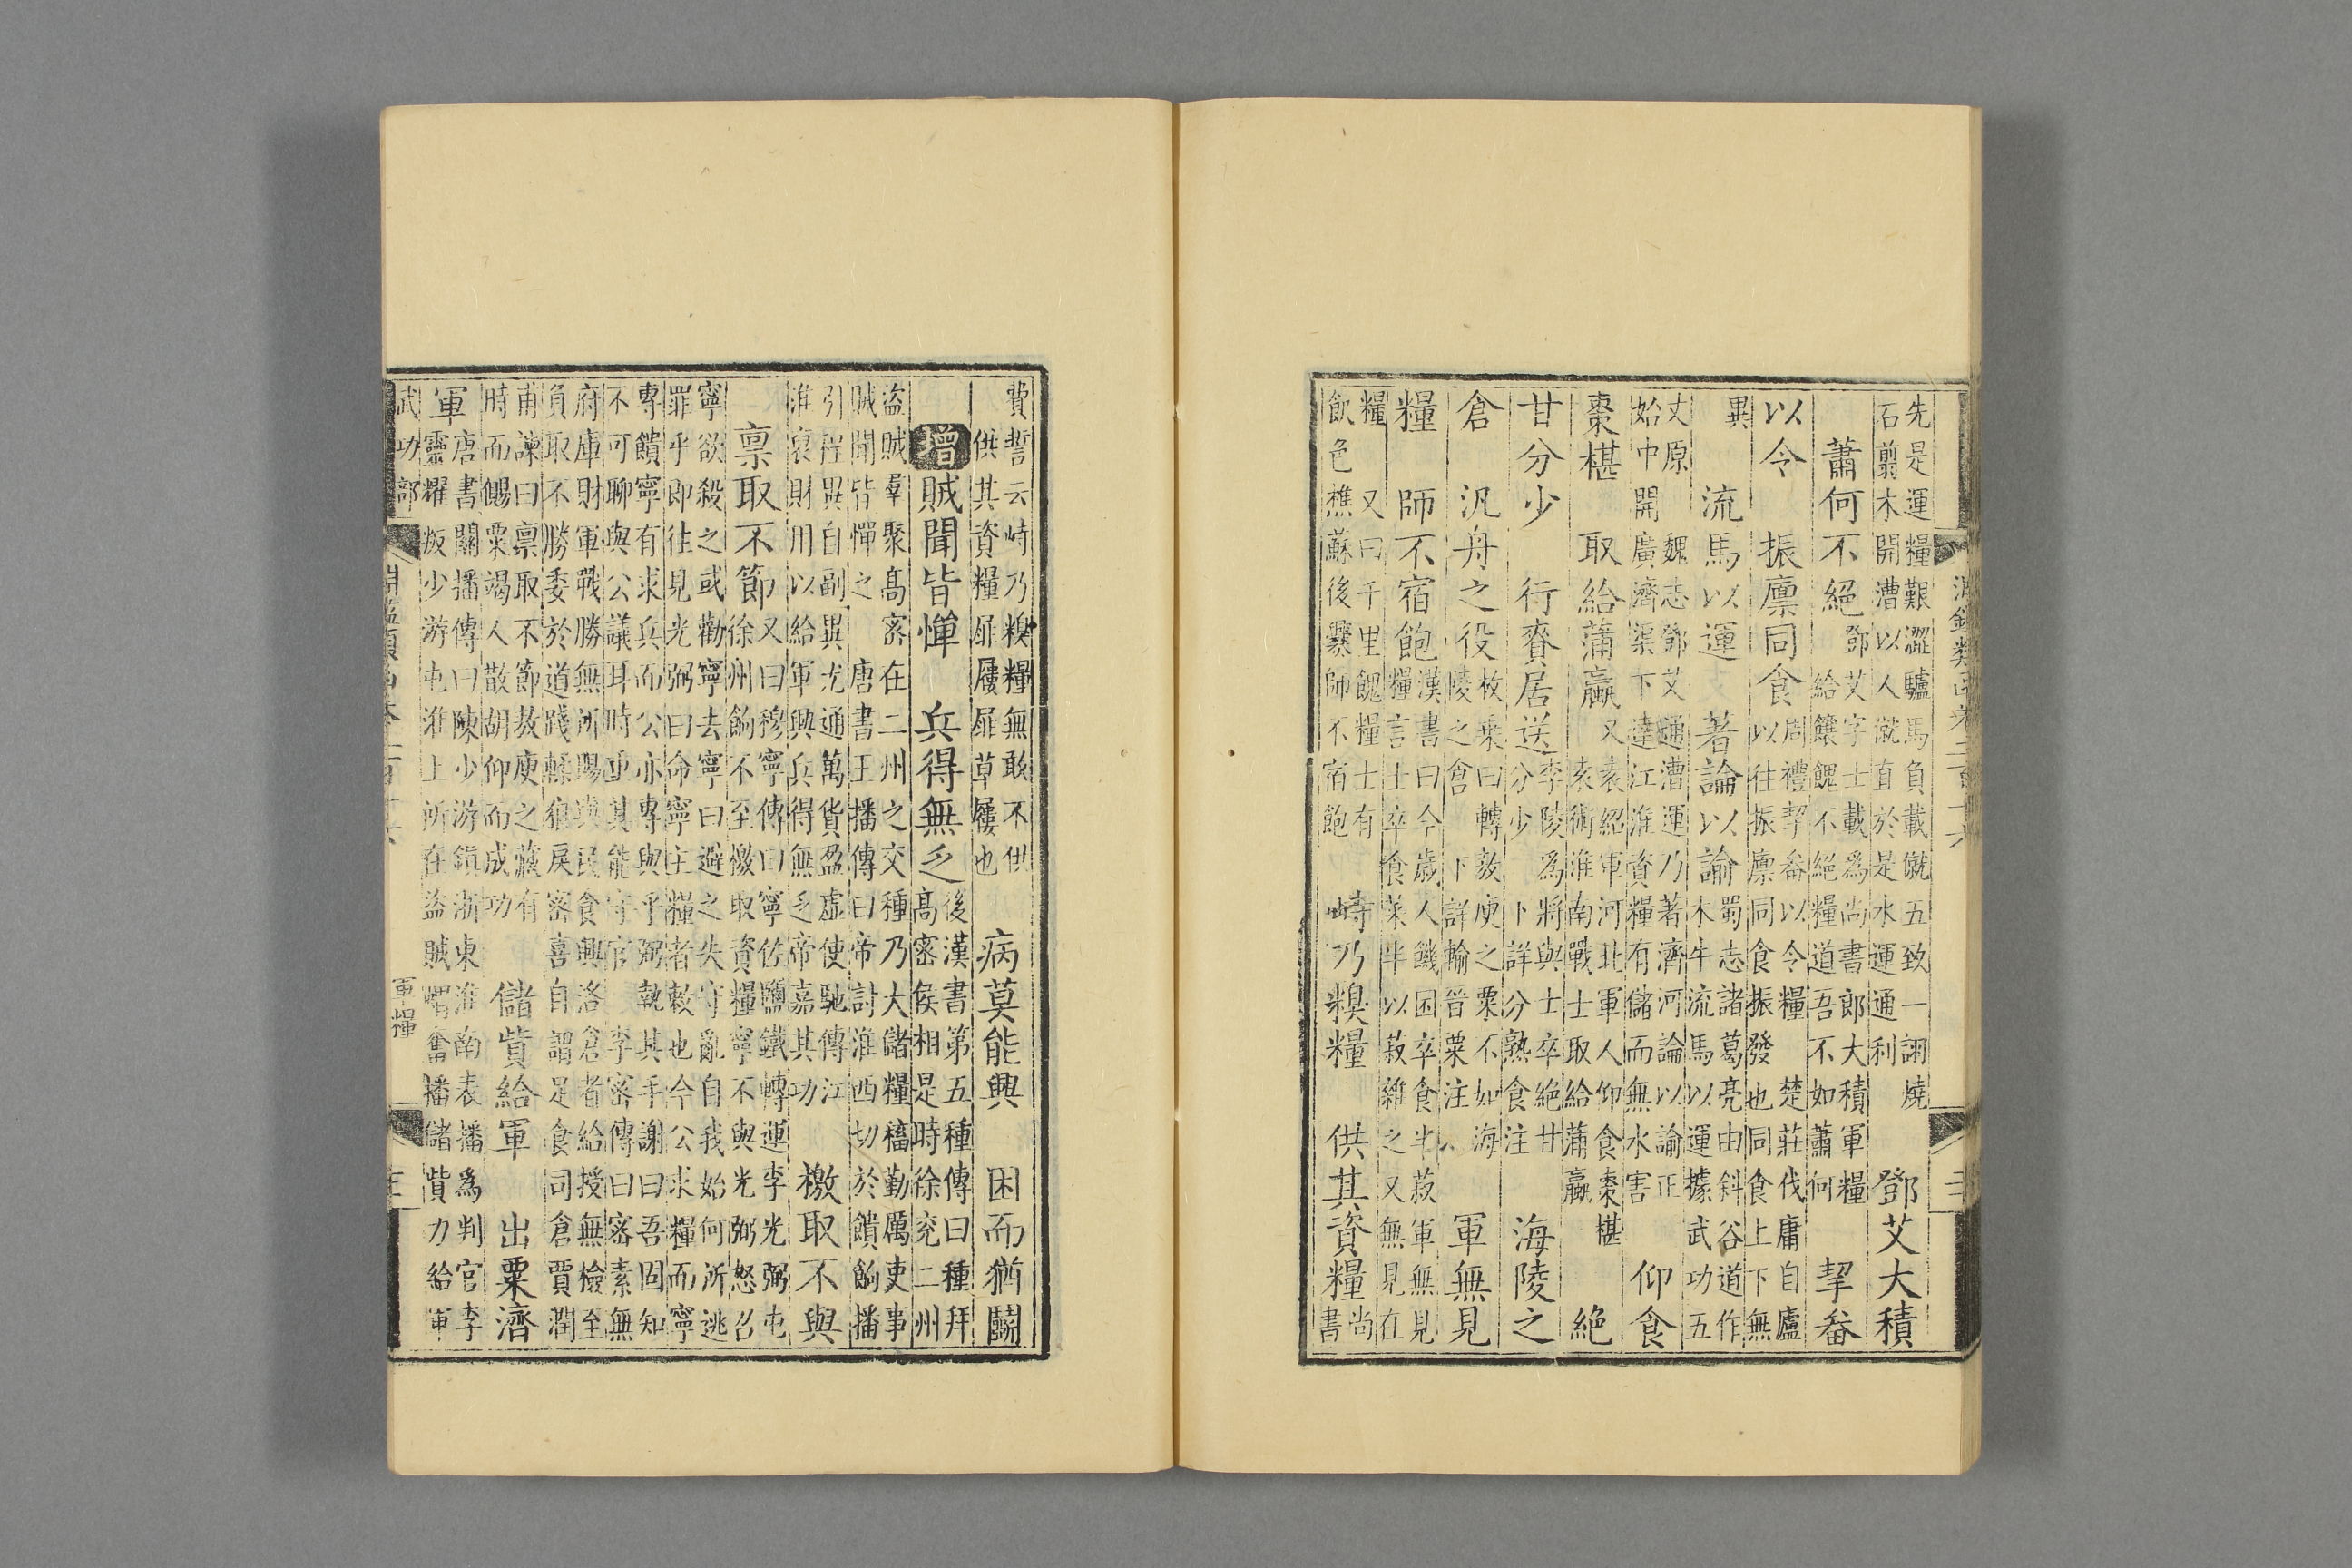 淵鑑類函卷二百十六
先是運糧艱澀驢馬負載僦五致一詡燒
石翦木開漕以人僦直於是水運通利
鄧艾大積
蕭何不絕
鄧艾字士載為尚書郎大積軍糧
給饟餽不絕糧道吾不如蕭何
挈畚
以令　振廩同食
周禮挈畚以令糧　楚莊伐庸自廬
以往振廩同食振發也同食上下無
異　流馬以運　著論以諭
蜀志諸葛亮由斜谷道作
木牛流馬以運據武功五
丈原　魏志鄧艾通漕運乃著濟河論以諭正
始中開廣濟渠下達江淮資糧有儲而無水害
仰食
棗椹　取給蒲蠃
又袁紹軍河北軍人仰食棗椹
袁術淮南戰士取給蒲蠃
絕
甘分少　行賚居送
李陵為將與士卒絕甘
分少　卜詳分熟食注
海陵之
倉　汎舟之役
枚乘曰轉敖庾之粟不如海
陵之倉　下詳輸晉粟注
軍無見
糧　師不宿飽
漢書曰今歲人饑困卒食半菽軍無見
糧言士卒食菜半以菽雜之又無見在
糧　又曰千里餽糧士有
飲色樵蘇後爨師不宿飽
峙乃糗糧　供其資糧
尚
書
費誓云峙乃糗糧無敢不供
供其資糧屝屨屝草屨也
病莫能興　困而猶鬭
增賊聞皆憚　兵得無乏
後漢書第五種傳曰種拜
高密侯相是時徐兗二州
盜賊羣聚高密在二州之交種乃大儲糧穡勤厲吏事
賊聞皆憚之　唐書王播傳曰帝討淮西切於饋餉播
引程異自副異尤通萬貨盈虛使馳傳江
淮裒財用以給軍興兵得無乏帝嘉其功
檄取不與
禀取不節
又曰穆寧傳曰寧佐鹽鐵轉運李光弼屯
徐州餉不至檄取資糧寧不與光弼怒召
寧欲殺之或勸寧去寧曰避之失守亂自我始何所逃
罪乎即往見光弼曰命寧主糧者敕也今公求糧而寧
專饋寧有求兵而公亦專與乎弼執其手謝曰吾固知
不可聊與公議耳時重其能守官　李密傳曰密素無
府庫財軍戰勝無所賜與民食興洛倉者給授無檢至
負取不勝委於道踐轢狼戾密喜自謂足食司倉賈潤
甫諫曰禀取不節敖庾之藏有
時而餲粟竭人散胡仰而成功
儲貲給軍　出粟濟
軍
唐書關播傳曰陳少游鎮浙東淮南表播為判官李
靈耀叛少游屯淮上所在盜賊蝟奮播儲貲力給軍
武功部　淵鑑類函卷二百十六　軍糧